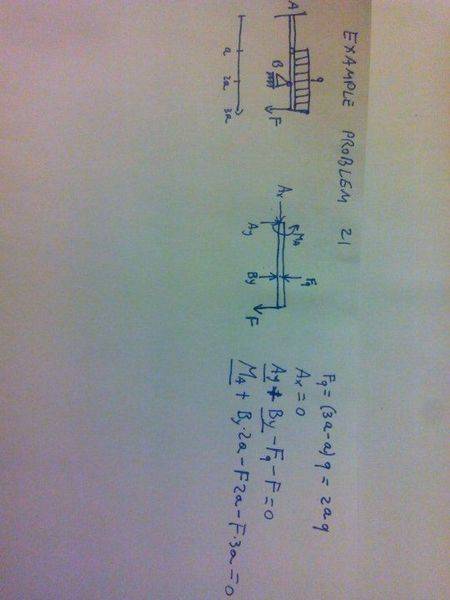 EXAMPLE PROBLEM 21
q
A
B
F
a 2a 3a
Ax
MA
Fq
Ay
By
F
Fq = (3a-a)q = 2aq
Ax = 0
Ay + By - Fq - F = 0
MA + By·2a - F2a - F·3a = 0